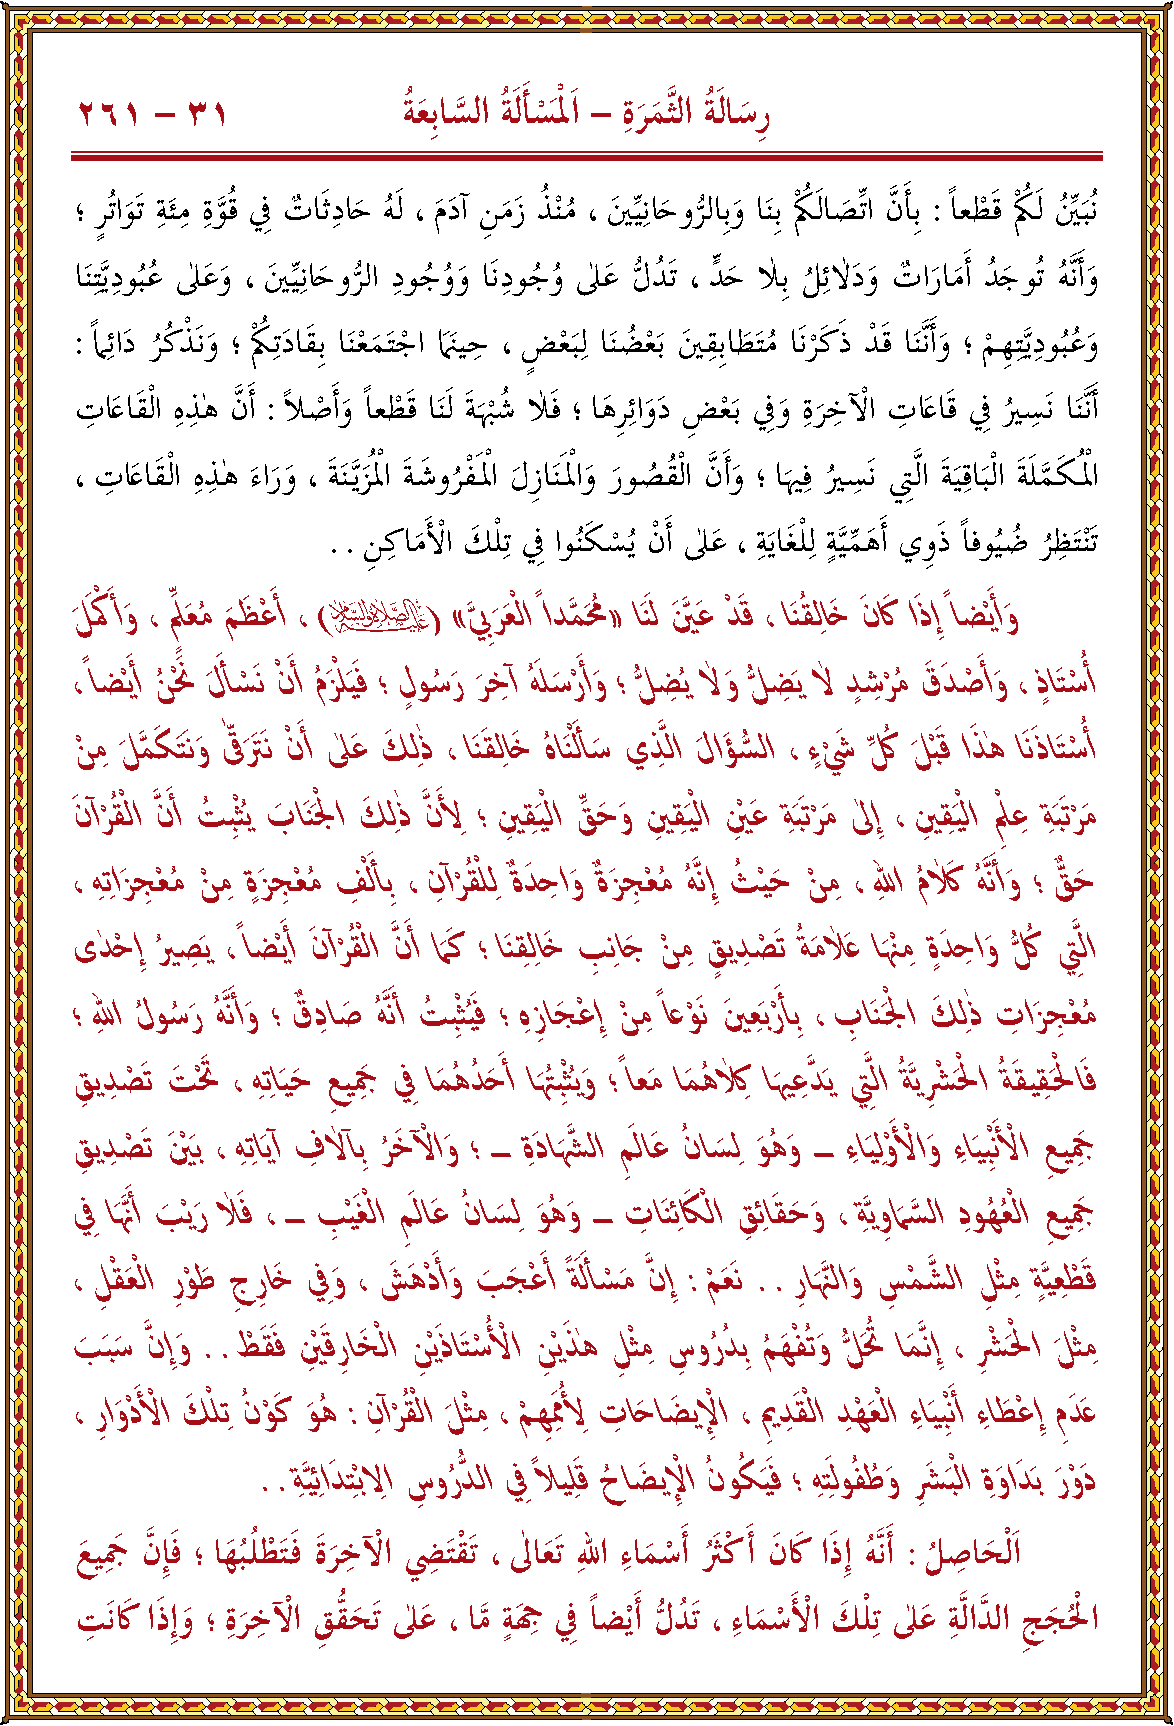 رِسَالَةُ الثَّمَرَةِ – اَلْمَسْأَلَةُ السَّابِعَةُ ٣١ – ٢٦١
نُبَيِّنُ لَكُمْ قَطْعاً : بِأَنَّ اتِّصَالَكُمْ بِنَا وَبِالرُّوحَانِيِّينَ ، مُنْذُ زَمَنِ آدَمَ ، لَهُ حَادِثَاتٌ فِي قُوَّةِ مِئَةِ تَوَاتُرٍ ؛
وَأَنَّهُ تُوجَدُ أَمَارَاتٌ وَدَلَائِلُ بِلَا حَدٍّ ، تَدُلُّ عَلٰى وُجُودِنَا وَوُجُودِ الرُّوحَانِيِّينَ ، وَعَلٰى عُبُودِيَّتِنَا
وَعُبُودِيَّتِهِمْ ؛ وَأَنَّنَا قَدْ ذَكَرْنَا مُتَطَابِقِينَ بَعْضُنَا لِبَعْضٍ ، حِينَمَا اجْتَمَعْنَا بِقَادَتِكُمْ ؛ وَنَذْكُرُ دَائِماً :
أَنَّنَا نَسِيرُ فِي قَاعَاتِ الْآخِرَةِ وَفِي بَعْضِ دَوَائِرِهَا ؛ فَلَا شُبْهَةَ لَنَا قَطْعاً وَأَصْلاً : أَنَّ هٰذِهِ الْقَاعَاتِ
الْمُكَمَّلَةَ الْبَاقِيَةَ الَّتِي نَسِيرُ فِيهَا ؛ وَأَنَّ الْقُصُورَ وَالْمَنَازِلَ الْمَفْرُوشَةَ الْمُزَيَّنَةَ ، وَرَاءَ هٰذِهِ الْقَاعَاتِ ،
تَنْتَظِرُ ضُيُوفاً ذَوِي أَهَمِّيَّةٍ لِلْغَايَةِ ، عَلٰى أَنْ يُسْكَنُوا فِي تِلْكَ الْأَمَاكِنِ . .
وَأَيْضاً إِذَا كَانَ خَالِقُنَا ، قَدْ عَيَّنَ لَنَا «مُحَمَّداً الْعَرَبِيَّ» (عَلَيْهِ الصَّلَاةُ وَالسَّلَامُ) ، أَعْظَمَ مُعَلِّمٍ ، وَأَكْمَلَ
أُسْتَاذٍ ، وَأَصْدَقَ مُرْشِدٍ لَا يَضِلُّ وَلَا يُضِلُّ ؛ وَأَرْسَلَهُ آخِرَ رَسُولٍ ؛ فَيَلْزَمُ أَنْ نَسْأَلَ نَحْنُ أَيْضاً ،
أُسْتَاذَنَا هٰذَا قَبْلَ كُلِّ شَيْءٍ ، السُّؤَالَ الَّذِي سَأَلْنَاهُ خَالِقَنَا ، ذٰلِكَ عَلٰى أَنْ نَتَرَقّٰى وَنَتَكَمَّلَ مِنْ
مَرْتَبَةِ عِلْمِ الْيَقِينِ ، إِلٰى مَرْتَبَةِ عَيْنِ الْيَقِينِ وَحَقِّ الْيَقِينِ ؛ لِأَنَّ ذٰلِكَ الْجَنَابَ يُثْبِتُ أَنَّ الْقُرْآنَ
حَقٌّ ؛ وَأَنَّهُ كَلَامُ اللهِ ، مِنْ حَيْثُ إِنَّهُ مُعْجِزَةٌ وَاحِدَةٌ لِلْقُرْآنِ ، بِأَلْفِ مُعْجِزَةٍ مِنْ مُعْجِزَاتِهِ ،
الَّتِي كُلُّ وَاحِدَةٍ مِنْهَا عَلَامَةُ تَصْدِيقٍ مِنْ جَانِبِ خَالِقِنَا ؛ كَمَا أَنَّ الْقُرْآنَ أَيْضاً ، يَصِيرُ إِحْدٰى
مُعْجِزَاتِ ذٰلِكَ الْجَنَابِ ، بِأَرْبَعِينَ نَوْعاً مِنْ إِعْجَازِهِ ؛ فَيُثْبِتُ أَنَّهُ صَادِقٌ ؛ وَأَنَّهُ رَسُولُ اللهِ ؛
فَالْحَقِيقَةُ الْحَشْرِيَّةُ الَّتِي يَدَّعِيهَا كِلَاهُمَا مَعاً ؛ وَيُثْبِتُهَا أَحَدُهُمَا فِي جَمِيعِ حَيَاتِهِ ، تَحْتَ تَصْدِيقِ
جَمِيعِ الْأَنْبِيَاءِ وَالْأَوْلِيَاءِ – وَهُوَ لِسَانُ عَالَمِ الشَّهَادَةِ – ؛ وَالْآخَرُ بِآلَافِ آيَاتِهِ ، بَيْنَ تَصْدِيقِ
جَمِيعِ الْعُهُودِ السَّمَاوِيَّةِ ، وَحَقَائِقِ الْكَائِنَاتِ – وَهُوَ لِسَانُ عَالَمِ الْغَيْبِ – ، فَلَا رَيْبَ أَنَّهَا فِي
قَطْعِيَّةٍ مِثْلِ الشَّمْسِ وَالنَّهَارِ . . نَعَمْ : إِنَّ مَسْأَلَةً أَعْجَبَ وَأَدْهَشَ ، وَفِي خَارِجِ طَوْرِ الْعَقْلِ ،
مِثْلَ الْحَشْرِ ، إِنَّمَا تُحَلُّ وَتُفْهَمُ بِدُرُوسِ مِثْلِ هٰذَيْنِ الْأُسْتَاذَيْنِ الْخَارِقَيْنِ فَقَطْ . . وَإِنَّ سَبَبَ
عَدَمِ إِعْطَاءِ أَنْبِيَاءِ الْعَهْدِ الْقَدِيمِ ، الْإِيضَاحَاتِ لِأُمَمِهِمْ ، مِثْلَ الْقُرْآنِ : هُوَ كَوْنُ تِلْكَ الْأَدْوَارِ ،
دَوْرَ بَدَاوَةِ الْبَشَرِ وَطُفُولَتِهِ ؛ فَيَكُونُ الْإِيضَاحُ قَلِيلاً فِي الدُّرُوسِ الِابْتِدَائِيَّةِ . .
اَلْحَاصِلُ : أَنَّهُ إِذَا كَانَ أَكْثَرُ أَسْمَاءِ اللهِ تَعَالٰى ، تَقْتَضِي الْآخِرَةَ فَتَطْلُبُهَا ؛ فَإِنَّ جَمِيعَ
الْحُجَجِ الدَّالَّةِ عَلٰى تِلْكَ الْأَسْمَاءِ ، تَدُلُّ أَيْضاً فِي جِهَةٍ مَّا ، عَلٰى تَحَقُّقِ الْآخِرَةِ ؛ وَإِذَا كَانَتِ